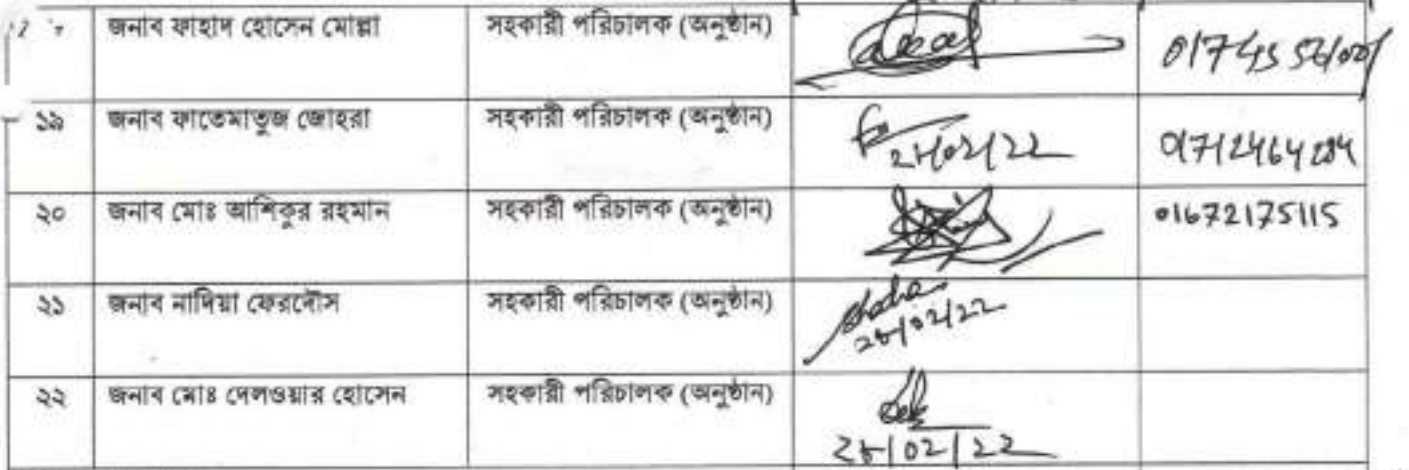 জনাব ফাহাদ হোসেন মোল্লা সহকারী পরিচালক (অনুষ্ঠান)
১৯ জনাব ফাতেমাতুজ জোহরা সহকারী পরিচালক (অনুষ্ঠান) 28/02/22 01712464284
২০ জনাব মোঃ আশিকুর রহমান সহকারী পরিচালক (অনুষ্ঠান) 01672175115
২১ জনাব নাদিয়া ফেরদৌস সহকারী পরিচালক (অনুষ্ঠান)
28/02/22
২২ জনাব মোঃ দেলওয়ার হোসেন সহকারী পরিচালক (অনুষ্ঠান)
28/02/22